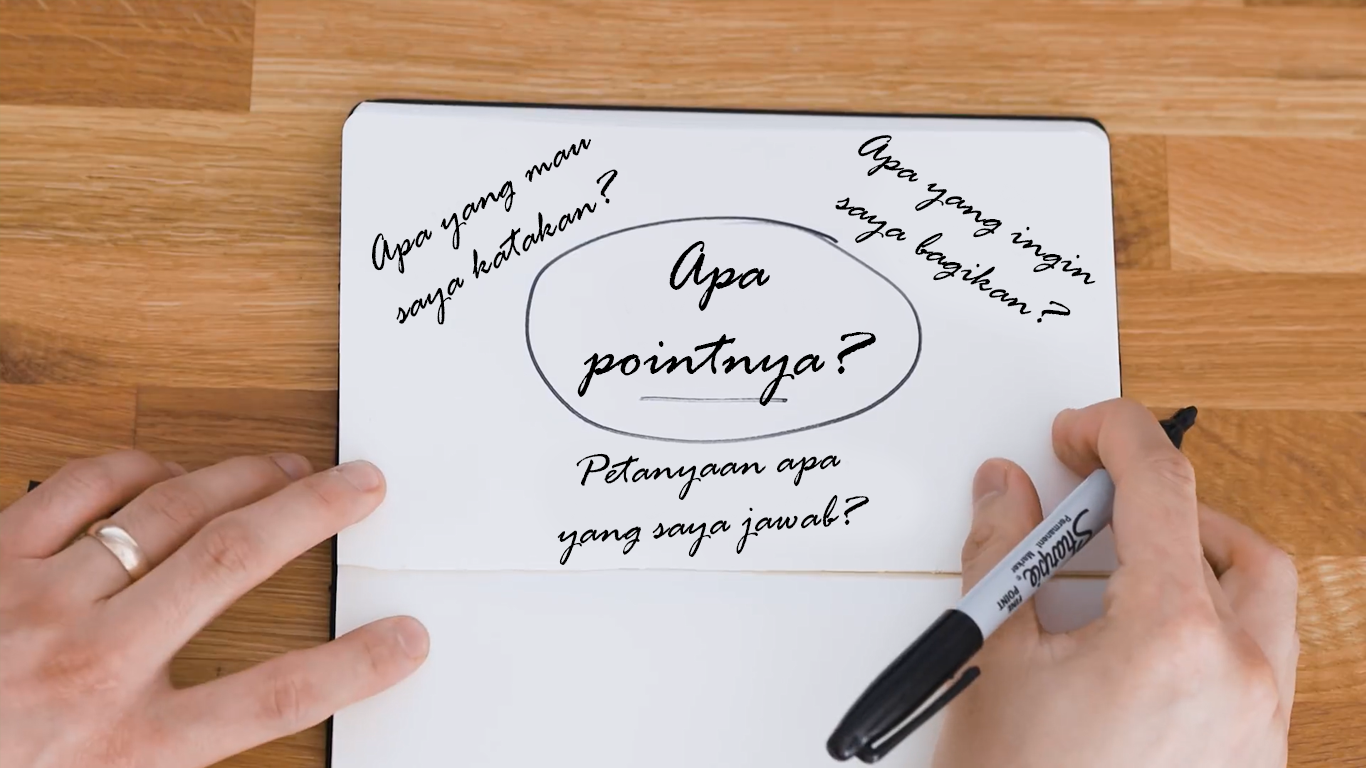 Apa yang mau
saya katakan?
Apa yang ingin
saya bagikan?
Apa
pointnya?
Petanyaan apa
yang saya jawab?
Sharpie
Permanent Marker
FINE
POINT